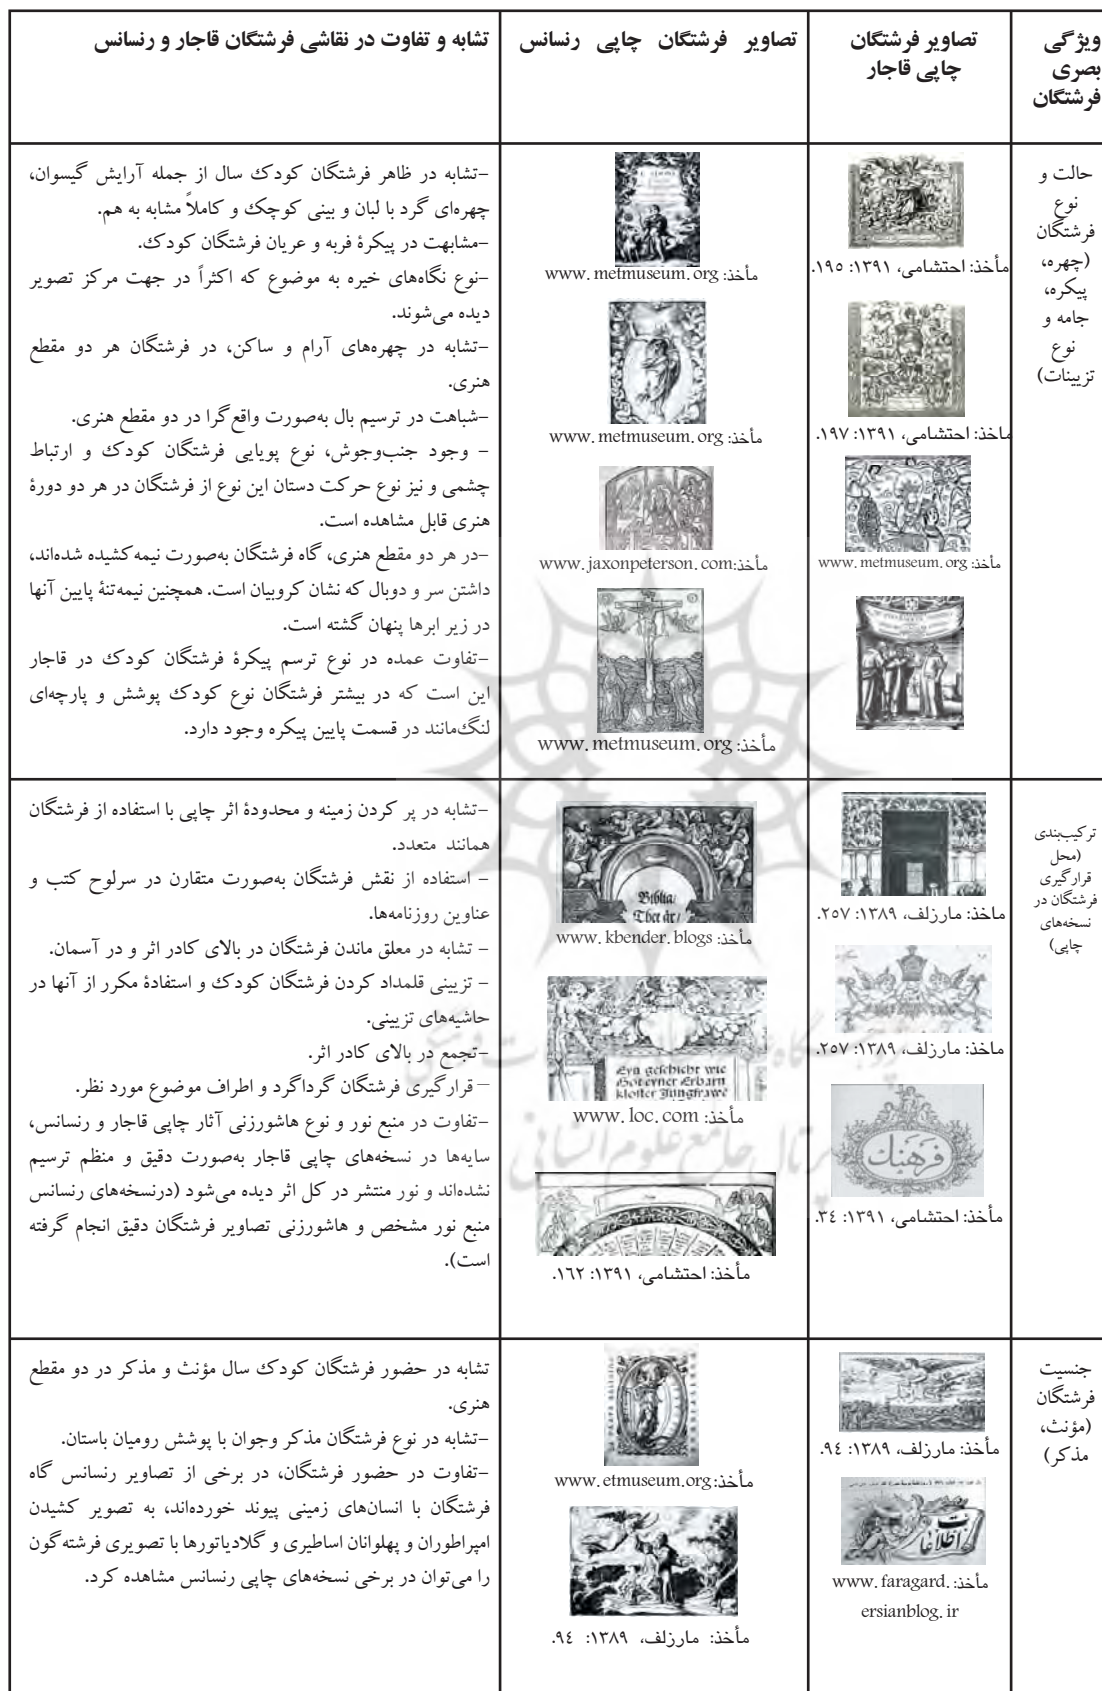 ویژگی
بصری
فرشتگان
تصاویر فرشتگان
چاپی قاجار
تصاویر فرشتگان چاپی رنسانس
تشابه و تفاوت در نقاشی فرشتگان قاجار و رنسانس
حالت و
نوع
فرشتگان
(چهره،
پیکره،
جامه و
نوع
تزیینات)
مأخذ: احتشامی، ۱۳۹۱: ۱۹۵.
ماخذ: احتشامی، ۱۳۹۱: ۱۹۷.
مأخذ: www.metmuseum.org
مأخذ: www.metmuseum.org
مأخذ: www.metmuseum.org
مأخذ:www.jaxonpeterson.com
مأخذ: www.metmuseum.org
-تشابه در ظاهر فرشتگان کودک سال از جمله آرایش گیسوان،
چهره‌ای گرد با لبان و بینی کوچک و کاملاً مشابه به هم.
-مشابهت در پیکرهٔ فربه و عریان فرشتگان کودک.
-نوع نگاه‌های خیره به موضوع که اکثراً در جهت مرکز تصویر
دیده می‌شوند.
-تشابه در چهره‌های آرام و ساکن، در فرشتگان هر دو مقطع
هنری.
-شباهت در ترسیم بال به‌صورت واقع‌گرا در دو مقطع هنری.
- وجود جنب‌وجوش، نوع پویایی فرشتگان کودک و ارتباط
چشمی و نیز نوع حرکت دستان این نوع از فرشتگان در هر دو دورهٔ
هنری قابل مشاهده است.
-در هر دو مقطع هنری، گاه فرشتگان به‌صورت نیمه کشیده شده‌اند،
داشتن سر و دوبال که نشان کروبیان است. همچنین نیمه‌تنهٔ پایین آنها
در زیر ابرها پنهان گشته است.
-تفاوت عمده در نوع ترسم پیکرهٔ فرشتگان کودک در قاجار
این است که در بیشتر فرشتگان نوع کودک پوشش و پارچه‌ای
لنگ‌مانند در قسمت پایین پیکره وجود دارد.
ترکیب‌بندی
(محل
قرارگیری
فرشتگان در
نسخه‌های
چاپی)
ماخذ: مارزلف، ۱۳۸۹: ۲۵۷.
ماخذ: مارزلف، ۱۳۸۹: ۲۵۷.
فرهنگ
مأخذ: احتشامی، ۱۳۹۱: ۳٤.
Biblia/
Thet är/
مأخذ: www.kbender.blogs
Eyn geschicht wie
Got eyner Erbarn
kloster Jungfrawe
مأخذ: www.loc.com
مأخذ: احتشامی، ۱۳۹۱: ۱۶۲.
-تشابه در پر کردن زمینه و محدودهٔ اثر چاپی با استفاده از فرشتگان
همانند متعدد.
- استفاده از نقش فرشتگان به‌صورت متقارن در سرلوح کتب و
عناوین روزنامه‌ها.
- تشابه در معلق ماندن فرشتگان در بالای کادر اثر و در آسمان.
- تزیینی قلمداد کردن فرشتگان کودک و استفادهٔ مکرر از آنها در
حاشیه‌های تزیینی.
-تجمع در بالای کادر اثر.
-قرارگیری فرشتگان گرداگرد و اطراف موضوع مورد نظر.
-تفاوت در منبع نور و نوع هاشورزنی آثار چاپی قاجار و رنسانس،
سایه‌ها در نسخه‌های چاپی قاجار به‌صورت دقیق و منظم ترسیم
نشده‌اند و نور منتشر در کل اثر دیده می‌شود (درنسخه‌های رنسانس
منبع نور مشخص و هاشورزنی تصاویر فرشتگان دقیق انجام گرفته
است).
پرتال جامع علوم انسانی
جنسیت
فرشتگان
(مؤنث،
مذکر)
مأخذ: مارزلف، ۱۳۸۹: ۹٤.
اطلاعات
مأخذ: www.faragard.
ersianblog.ir
مأخذ:www.etmuseum.org
مأخذ: مارزلف، ۱۳۸۹: ۹٤.
تشابه در حضور فرشتگان کودک سال مؤنث و مذکر در دو مقطع
هنری.
-تشابه در نوع فرشتگان مذکر وجوان با پوشش رومیان باستان.
-تفاوت در حضور فرشتگان، در برخی از تصاویر رنسانس گاه
فرشتگان با انسان‌های زمینی پیوند خورده‌اند، به تصویر کشیدن
امپراطوران و پهلوانان اساطیری و گلادیاتورها با تصویری فرشته‌گون
را می‌توان در برخی نسخه‌های چاپی رنسانس مشاهده کرد.